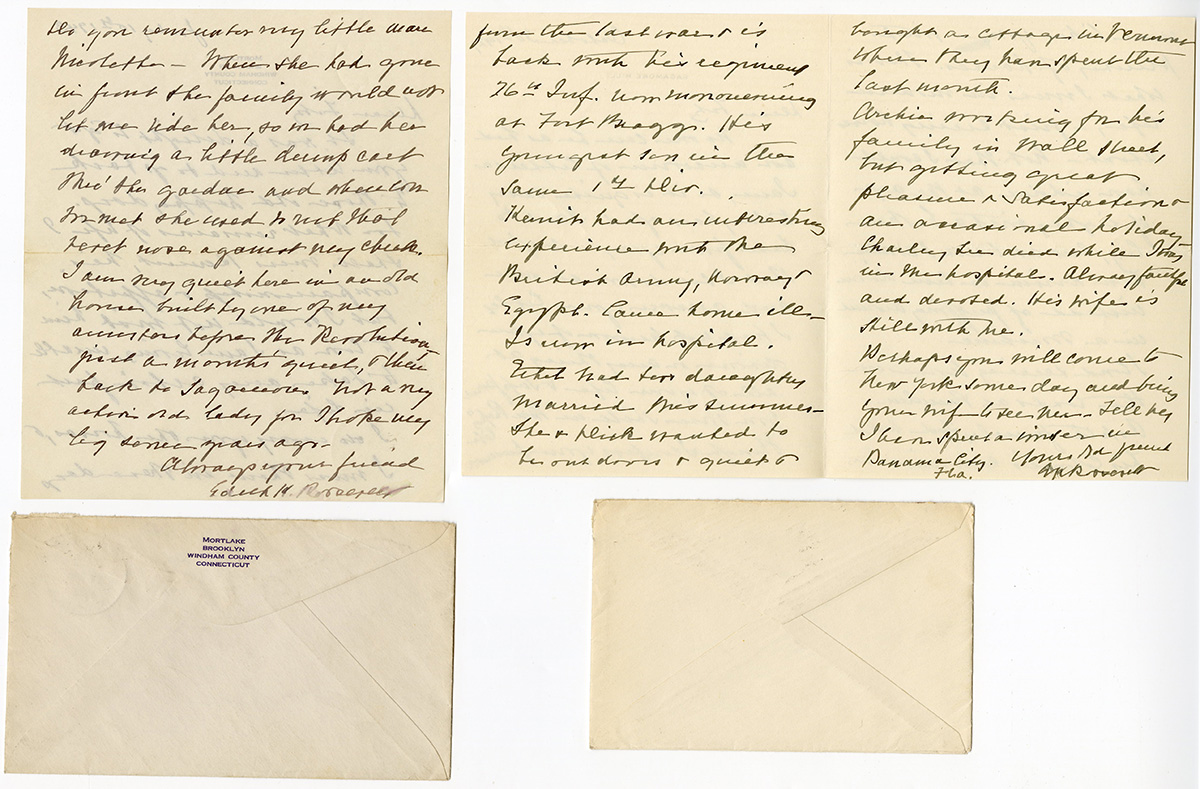 Do you remember my little mare
Nicolette – When she had gone
in front the family would not
let me ride her, so we had her
drawing a little dump cart
thro' the garden and when
we met she used to rub that
nose against my cheek.
I am very quiet here in an old
house built by one of my
ancestors before the Revolution
just a months quiet, & then
back to Sagamore. Not a very
active old lady for I broke my
hip some years ago–
Always your friend
Edith K. Roosevelt
MORTLAKE
BROOKLYN
WINDHAM COUNTY
CONNECTICUT
from the last war & is
back with his regiment
26th Inf. now manoeuvering
at Fort Bragg. His
youngest son in the
same 1st Div.
Kermit had an interesting
experience with the
British Army, Norway &
Egypt. Came home ill–
Is now in hospital.
Ethel had two daughters
married this summer–
She & Dick wanted to
be outdoors & quiet &
bought a cottage in Vermont
where they have spent the
last month.
Archie working for his
family in Wall Street,
but getting great
pleasure & satisfaction &
an occasional holiday
Charley Lee died while I was
in the hospital. Always faithful
and devoted. His wife is
still with me.
Perhaps you will come to
New York some day and bring
your wife to see me. Tell her
I have spent a winter in
Panama City, Yours old friend
Fla. EKRoosevelt